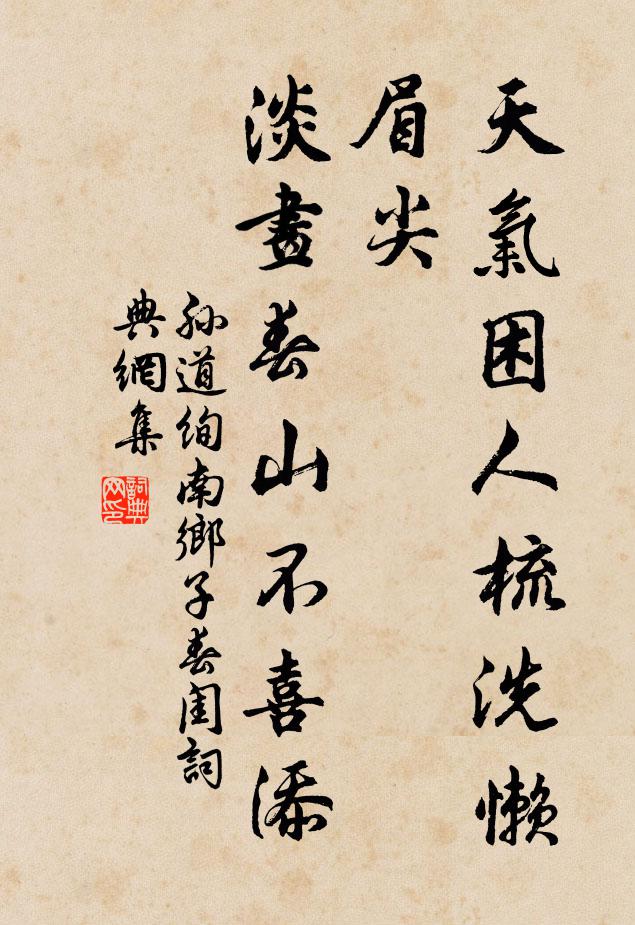 天氣困人梳洗懶
眉尖
淡畫春山不喜添
孙道绚南鄉子春闺詞
典網集
詞典网印